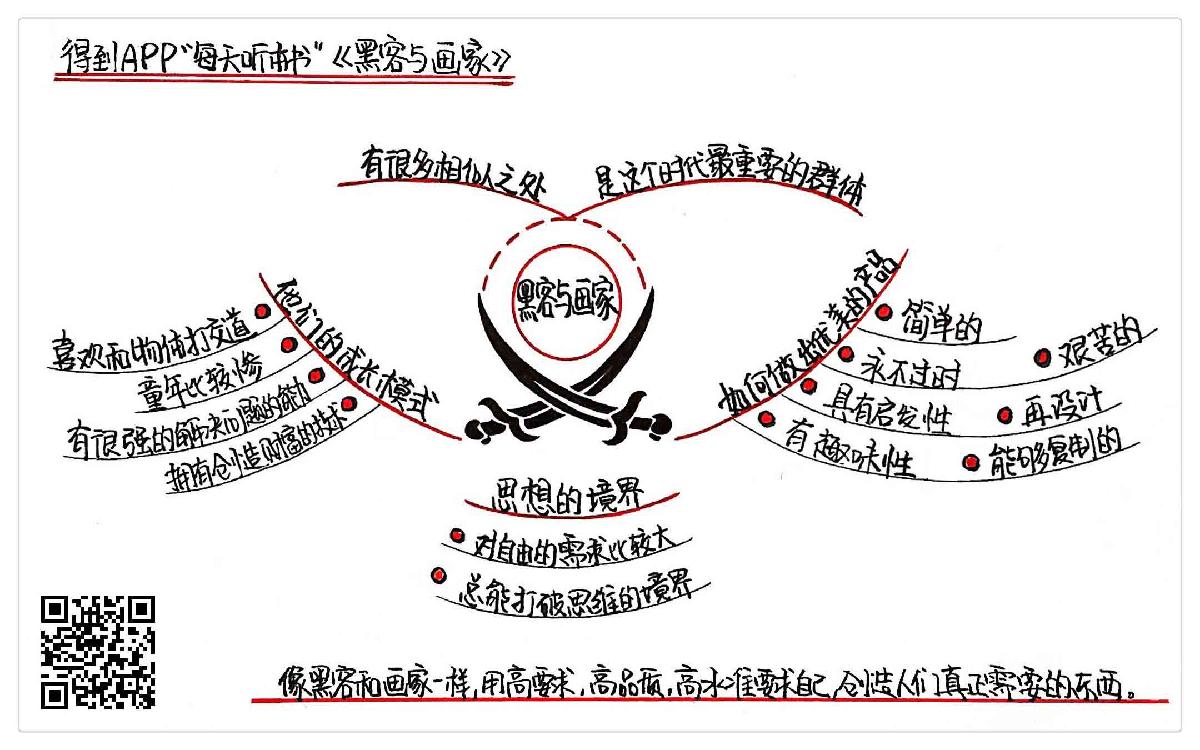 得到APP"每天听本书"《黑客与画家》
有很多相似之处
是这个时代最重要的群体
黑客与画家
他们的成长模式
喜欢和物体打交道
童年比较惨
有很强的解决问题的能力
拥有创造财富的技术
如何做出优美的产品
简单的
艰苦的
永不过时
再设计
具有启发性
能够复制的
有趣味性
思想的境界
对自由的需求比较大
总能打破思维的境界
像黑客和画家一样,用高要求,高品质,高水准要求自己,创造人们真正需要的东西。